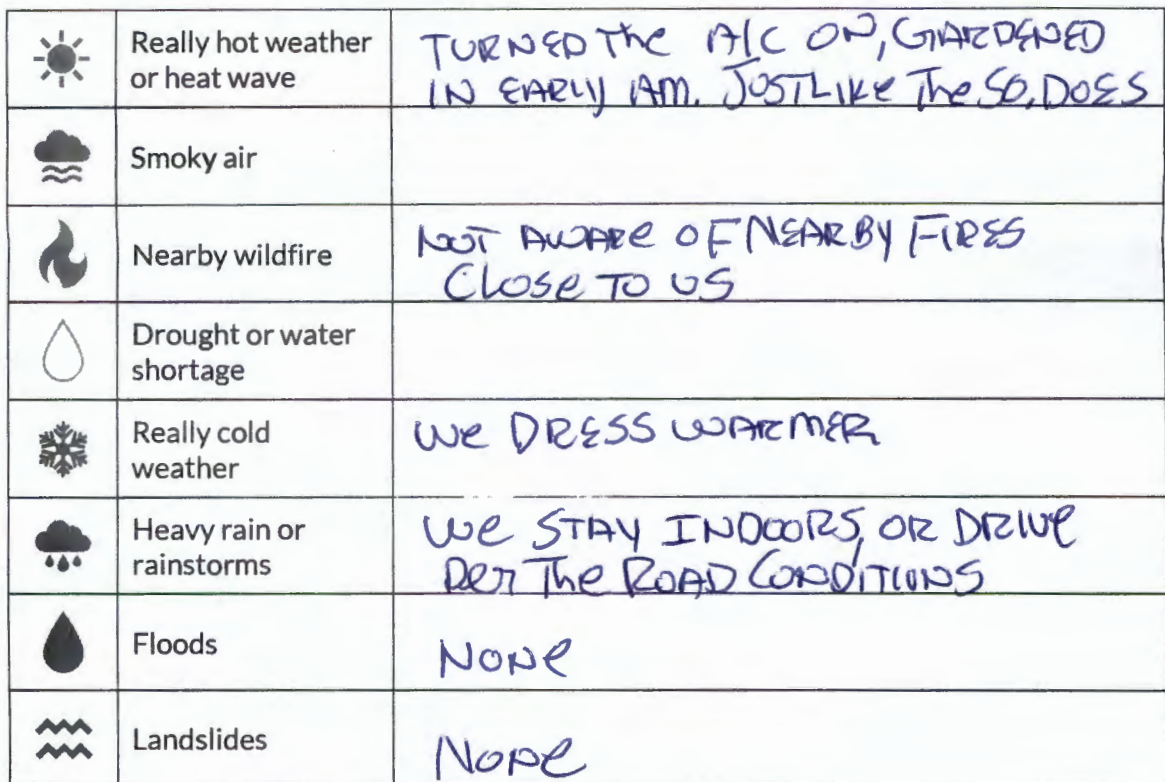 Really hot weather
or heat wave
TURNED The A/C ON, GARDENED
IN EARLY AM. JUST LIKE The SO. DOES
Smoky air
Nearby wildfire
NOT AWARE OF NEARBY FIRES
CLOSe TO US
Drought or water
shortage
Really cold
weather
We DRESS WARMER
Heavy rain or
rainstorms
We STAY INDOORS, OR DRIVe
Per The ROAD CONDITIONS
Floods
NONe
Landslides
NONe